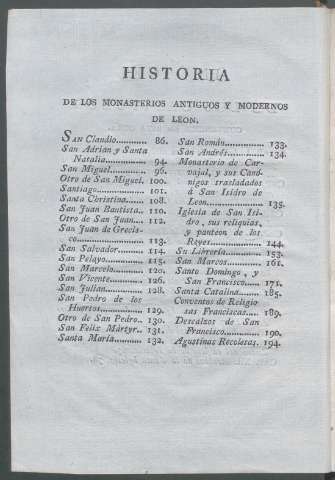 HISTORIA
DE LOS MONASTERIOS ANTIGUOS Y MODERNOS
DE LEON.
SAN Claudio............ 86.
San Adrian y Santa
Natalia............... 94.
San Miguel............ 96.
Otro de San Miguel. 100.
Santiago............... 101.
Santa Christina....... 108.
San Juan Bautista.. 110.
Otro de San Juan.... 112.
San Juan de Grecis-
co.................... 113.
San Salvador......... 114.
San Pelayo............ 115.
San Marcelo.......... 120.
San Vicente........... 126.
San Julian............ 128.
San Pedro de los
Huertos............... 129.
Otro de San Pedro.. 130.
San Feliz Mártyr.... 131.
Santa María.......... 132.
San Román............ 133.
San Andrés............ 134.
Monasterio de Car-
vajal, y sus Canó-
nigos trasladados
á San Isidro de
Leon.................. 135.
Iglesia de San Isi-
dro, sus reliquias,
y panteon de los
Reyes................. 144.
Su Librería........... 153.
San Marcos........... 161.
Santo Domingo, y
San Francisco...... 171.
Santa Catalina...... 185.
Conventos de Religio-
sas Franciscas..... 189.
Descalzos de San
Francisco............ 190.
Agustinas Recoletas. 194.